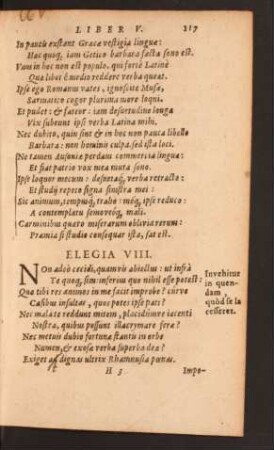 LIBER V. 217
In paucis exstant Græcæ vestigia linguæ:
Hæc quoq, iam Getico barbara facta sono est.
Vnus in hoc non est populo, qui fortè Latinè
Quælibet è medio reddere verba queat.
Ipse ego Romanus vates, ignoscite Musæ,
Sarmatico cogor plurima more loqui.
Et pudet: & fateor: iam desuetudine longa
Vix subeunt ipsi verba Latina mihi.
Nec dubito, quin sint & in hoc non pauca libello
Barbara: non hominis culpa, sed ista loci.
Ne tamen Ausoniæ perdam commercia linguæ:
Et fiat patrio vox mea muta sono.
Ipse loquor mecum: desuetaq́; verba retracto:
Et studij repeto signa sinistra mei:
Sic animum, tempusq́; traho: meq́; ipse reduco:
A contemplatu semoveoq́; mali.
Carminibus quæro miserarum oblivia rerum:
Præmia si studio consequar ista, sat est.
ELEGIA VIII.
NOn adeò cecidi, quamvis abiectus: ut infrà
Te quoq, sim: inferius quo nihil esse potest:
Quæ tibi res animos in me facit improbe? curve
Casibus insultas, quos potes ipse pati?
Nec mala te reddunt mitem, placidumve iacenti
Nostra, quibus possunt illacrymare feræ?
Nec metuis dubio fortunæ stantis in orbe
Numen, & exosæ verba superba deæ?
Exiget at dignas ultrix Rhamnusia pœnas.
Invehitur
in quen-
dam,
quòd se la
cesseret.
H 5 Impo-